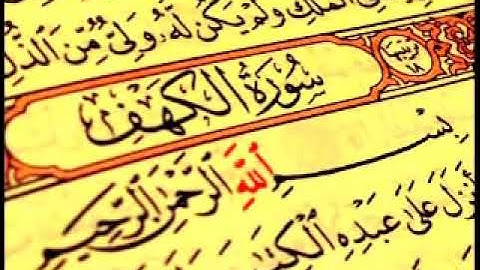 الْمُلْكِ وَلَمْ يَكُن لَّهُۥ وَلِىٌّ مِّنَ الذُّلِّ
سُورَةُ الْكَهْفِ
بِسْمِ اللَّهِ الرَّحْمَٰنِ الرَّحِيمِ
أَنزَلَ عَلَىٰ عَبْدِهِ الْكِتَٰبَ